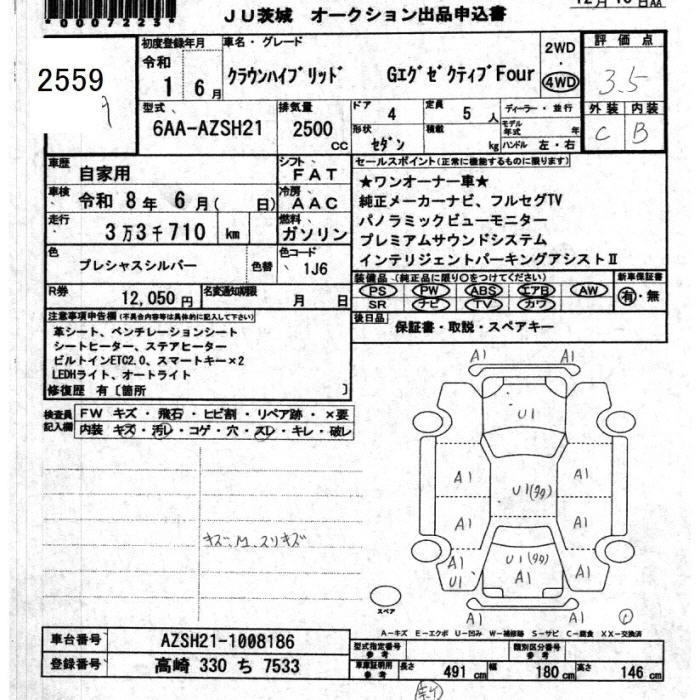 *0007223*
JU茨城 オークション出品申込書
12月16日AA
2559
初度登録年月
令和
1 6月
車名・グレード
クラウンハイブリッド GエグゼクティブFour
2WD
・
4WD
評価点
3.5
外装 内装
C B
型式
6AA-AZSH21
排気量
2500
cc
ドア
4
定員
5 人
ディーラー・並行
形状
セダン
積載
kg
モデル年式 年
ハンドル 左・右
車歴
自家用
シフト
FAT
車検
令和 8年 6月( 日)
冷房
AAC
走行
3万3千710 km
燃料
ガソリン
色
プレシャスシルバー
色替
色コード
1J6
R券
12,050円
名変通知期限
月 日
セールスポイント(正常に機能するものに限ります)
★ワンオーナー車★
純正メーカーナビ、フルセグTV
パノラミックビューモニター
プレミアムサウンドシステム
インテリジェントパーキングアシストⅡ
装備品-(純正品に限り○をつけてください)
PS PW ABS エアB AW
SR ナビ TV カワ
新車保証書
有・無
後日品
保証書・取説・スペアキー
注意事項申告欄(不具合内容等は具体的に記入して下さい)
革シート、ベンチレーションシート
シートヒーター、ステアヒーター
ビルトインETC2.0、スマートキー×2
LEDHライト、オートライト
修復歴 有〔箇所 〕
検査員記入欄
FW キズ・飛石・ヒビ割・リペア跡・×要
内装 キズ・汚レ・コゲ・穴・スレ・キレ・破レ
キズ一M スリキズ
A1 A1
U1
A1 A1
U1(タタ)
A1 A1
U1(タタ)
A1
A1
U1
A1
A1 A1
スペア
A-キズ E-エクボ U-凹み W-補修跡 S-サビ C-腐食 XX-交換済
車台番号
AZSH21-1008186
登録番号
高崎 330 ち 7533
型式指定番号
参考
類別区分番号
参考
車庫証明用
参考
長さ 491 cm 幅 180 cm 高さ 146 cm